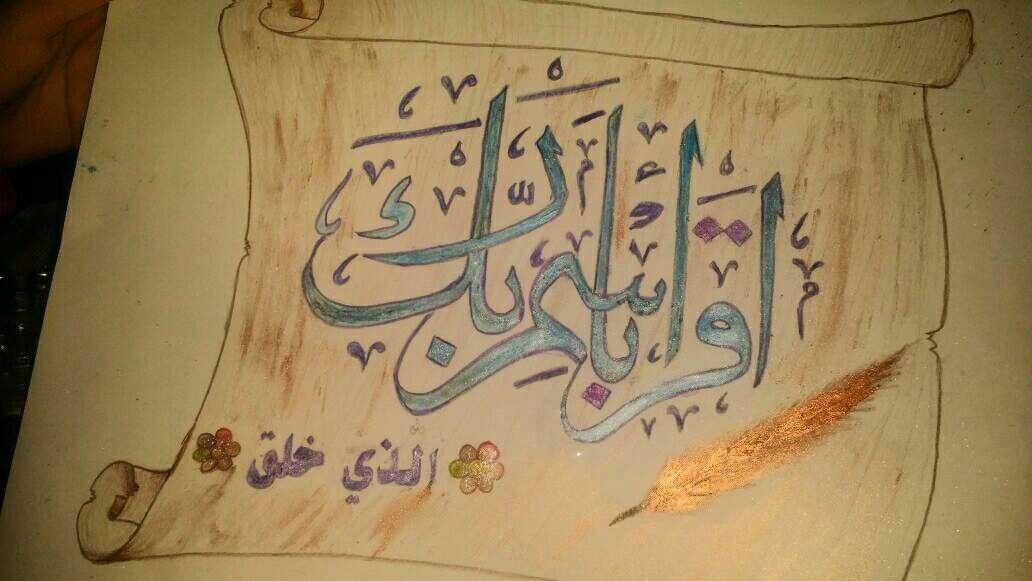 اقرأ باسم ربك
الذي خلق